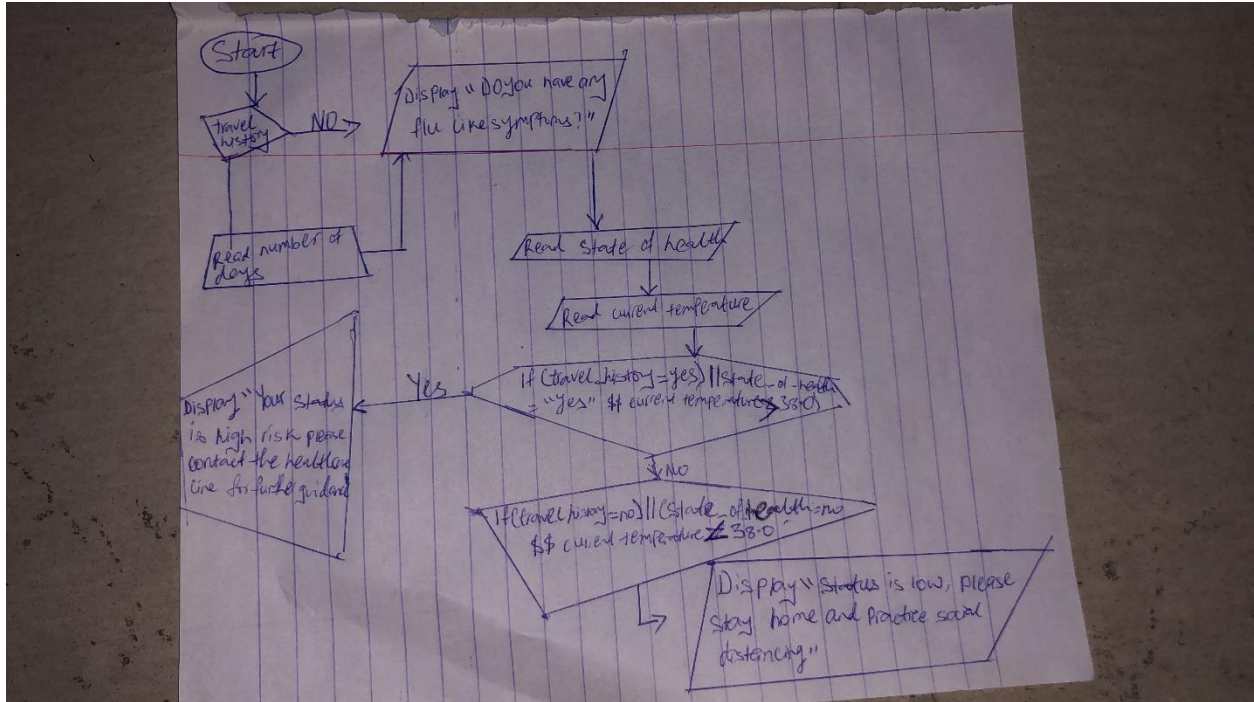 Start
travel
history
NO
Display "DO you have any
flu like symptoms?"
Read number of
days
Read state of health
Read current temperature
If (travel_history=yes) || state_of_health
= "yes" $$ current temperature > 38.0)
Yes
Display "Your status
is high risk please
contact the healthcare
line for further guidance
NO
If (travel history=no) || (state_of_health=no
$$ current temperature 38.0
Display "Status is low, please
stay home and practice social
distancing"